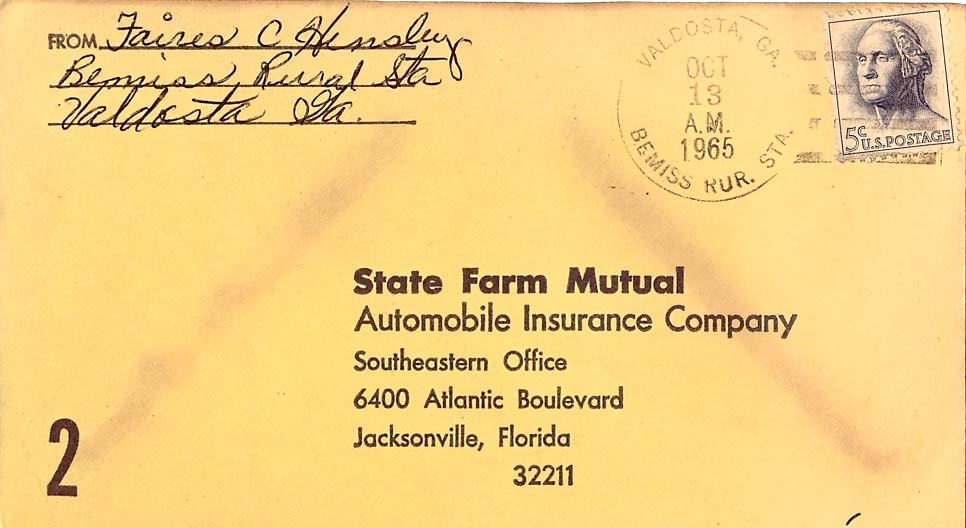 FROM Faires C Hensley
Bemiss Rural Sta
Valdosta Ga.
VALDOSTA, GA.
OCT
13
A.M.
1965
BEMISS RUR. STA.
5c U.S. POSTAGE
State Farm Mutual
Automobile Insurance Company
Southeastern Office
6400 Atlantic Boulevard
Jacksonville, Florida
32211
2